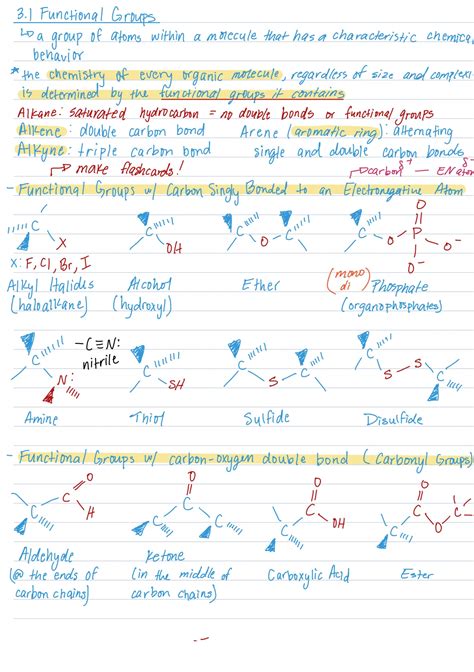 3.1 Functional Groups
↳ a group of atoms within a molecule that has a characteristic chemica
behavior
* the chemistry of every organic molecule, regardless of size and complexi
is determined by the functional groups it contains
Alkane: saturated hydrocarbon = no double bonds or functional groups
Alkene: double carbon bond Arene (aromatic ring): alternating
Alkyne: triple carbon bond single and double carbon bonds
↳ make flashcards! ↳ carbon δ+ — EN atom δ-
- Functional Groups w/ Carbon Singly Bonded to an Electronegative Atom
C X C OH C O C C O P O O⁻ O⁻
X: F, Cl, Br, I
Alkyl Halides Alcohol Ether (mono di) Phosphate
(haloalkane) (hydroxyl) (organophosphates)
C N: -C≡N: nitrile C SH C S C C S S C
Amine Thiol Sulfide Disulfide
- Functional Groups w/ carbon-oxygen double bond (Carbonyl Groups)
C C O H C C O C C C O OH C C O O C
Aldehyde Ketone Carboxylic Acid Ester
(@ the ends of (in the middle of
carbon chains) carbon chains)